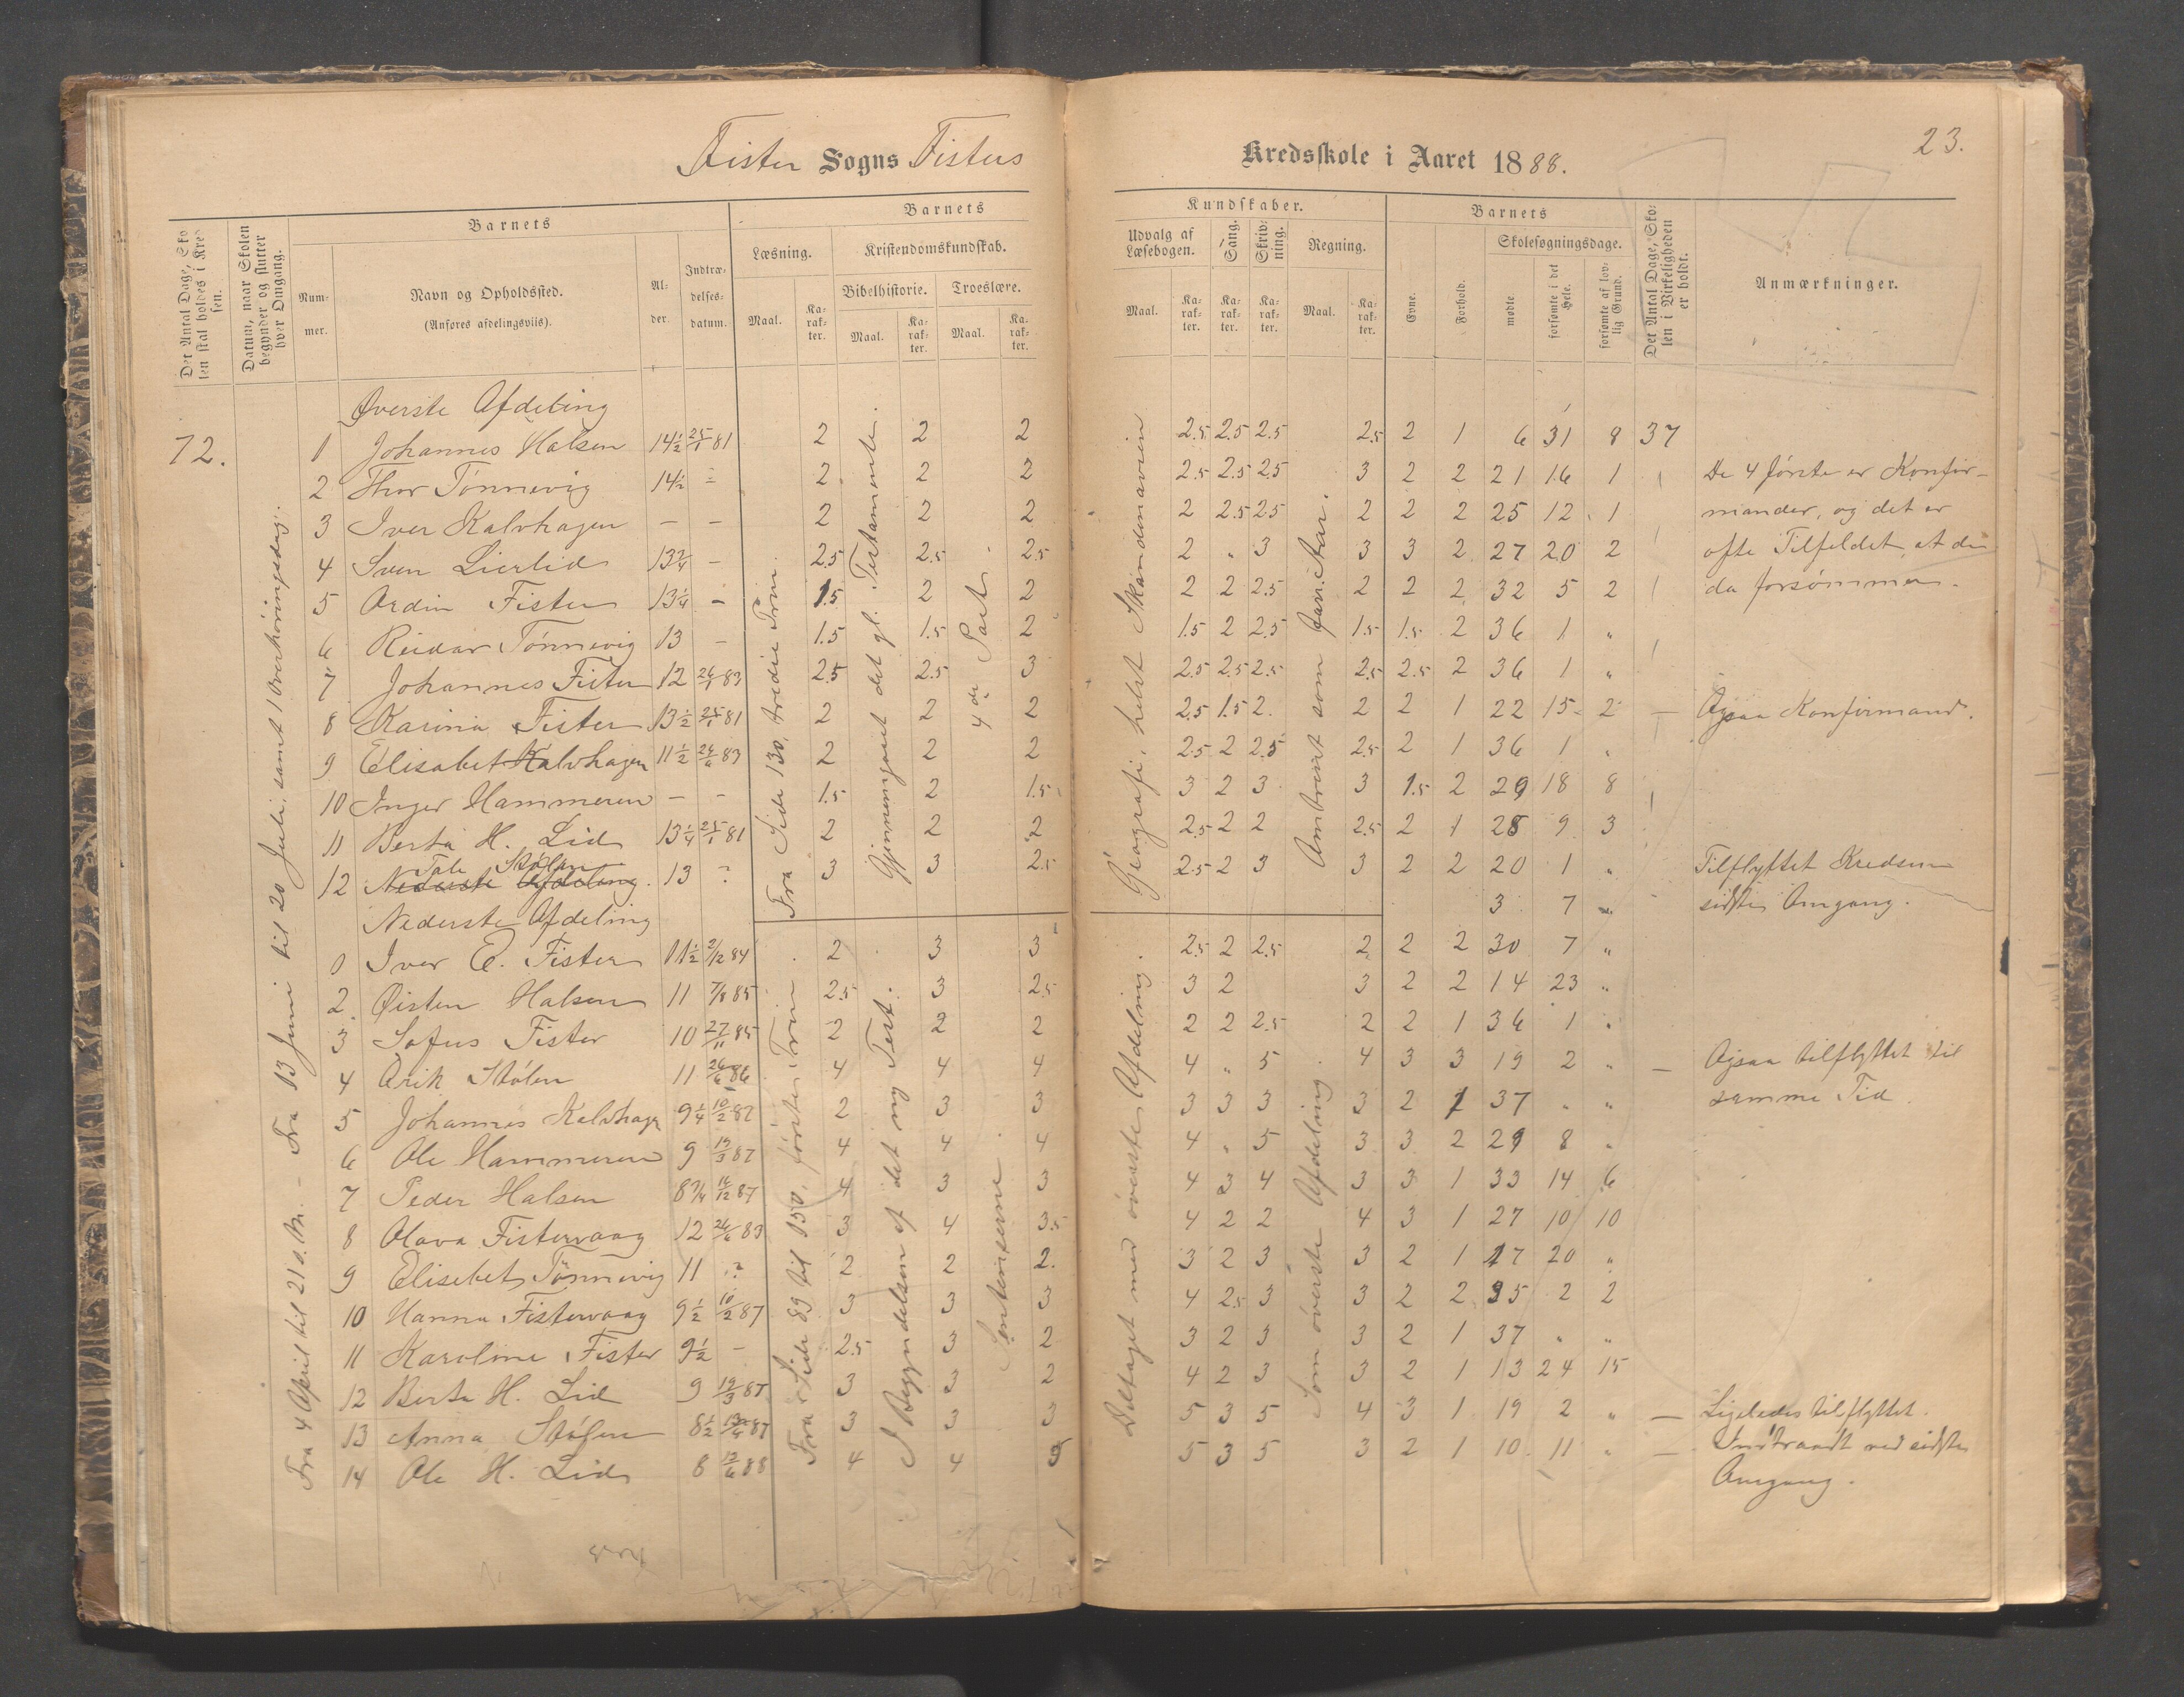 Fister Sogns Fisters Kredsskole i Aaret 1888.
23.
Det Antal Dage, Skolen skal holdes i Kredsen.
Datum, naar Skolen begynder og slutter hver Omgang.
Barnets
Nummer.
Navn og Opholdssted.
(Anføres afdelingsviis).
Alder.
Indtrædelsesdatum.
Barnets Kundskaber.
Læsning.
Maal.
Karakter.
Kristendomskundskab.
Bibelhistorie.
Maal.
Karakter.
Troeslære.
Maal.
Karakter.
Udvalg af Læsebogen.
Maal.
Karakter.
Sang.
Karakter.
Skrivning.
Karakter.
Regning.
Maal.
Karakter.
Barnets
Evne.
Forhold.
Skolesøgningsdage.
mødte
forsømte i det Hele.
forsømte af lovlig Grund.
Det Antal Dage, Skolen i Virkeligheden er holdt.
Anmærkninger.
72.
Fra 4 April til 21 s.M. - Fra 13 Juni til 20 Juli, samt 1 Overhøringsdag.
Øverste Afdeling
1 Johannes Halsen 14½ 25/1 81 2 2 2 2.5 2.5 2.5 2.5 2 1 6 31 8 37
2 Thor Tønnevig 14½ - 2 2 2 2.5 2.5 2.5 3 2 2 21 16 1 De 4 første er Konfir-
3 Iver Kalvhagen - - 2 2 2 2 2.5 2.5 2 2 2 25 12 1 mander, og det er
4 Sven Lierlid 13¾ - 2.5 2.5 2.5 2 " 3 3 3 2 27 20 2 ofte Tilfeldet, at de
5 Ardin Fister 13¼ - 1.5 2 2 2 2 2.5 2 2 2 32 5 2 da forsømmer.
6 Reidar Tønnevig 13 - 1.5 1.5 2 1.5 2 2.5 1.5 1.5 2 36 1 "
7 Johannes Fister 12 26/1 83 2.5 2.5 3 2.5 2.5 2.5 2.5 2.5 2 36 1 "
8 Karina Fister 13½ 25/1 81 2 2 2 2.5 1.5 2 2 2 1 22 15 2 - Ogsaa Konfirmand.
9 Elisabet Kalvhagen 11½ 26/6 83 2 2 2 2.5 2 2.5 2.5 2 1 36 1 "
10 Inger Hammeren - - 1.5 2 1.5 3 2 3 3 1.5 2 29 18 8
11 Berta H. Lid 13¼ 25/1 81 2 2 2 2.5 2 2 2.5 2 1 28 9 3
12 Tale Stølen 13 ? 3 3 2.5 2.5 2 3 3 2 2 20 1 " Tilflyttet Kredsen
Nederste Afdeling.
3 7 " sidste Omgang.
Fra Side 130, tredie Trin.
Gjennemgaaet det gl. Testamente.
4de Part.
Geografi, helst Skandinavien
Omtrent som forr. Aar.
Nederste Afdeling
0 Iver E. Fister 11½ 2/12 84 2 3 3 2.5 2 2.5 2 2 2 30 7 "
2. Øisten Halsen 11 7/8 85 2.5 3 2.5 3 2 3 2 2 14 23 "
3 Sofus Fister 10 27/11 85 2 2 2 2 2 2.5 2 2 1 36 1 "
4 Arik Stølen 11 26/6 86 4 4 4 4 " 5 4 3 3 19 2 " - Ogsaa tilflyttet til
5 Johannes Kalvhagn 9¼ 10/2 87 2 3 3 3 3 3 3 2 1 37 " " samme Tid.
6 Ole Hammeren 9 19/3 87 4 4 4 4 " 5 3 3 2 29 8 "
7 Peder Halsen 8¾ 16/12 87 4 3 3 4 3 4 3 3 1 33 14 6
8 Olava Fistervaag 12 26/6 83 3 4 3.5 4 2 2 4 3 1 27 10 10
9 Elisebet Tønnevig 11 ? 2 2 2. 3 2 3 3 2 1 17 20 "
10 Hanna Fistervaag 9½ 10/2 87 3 3 3 4 2.5 3 3 2 2 35 2 2
11 Karoline Fister 9½ - 2.5 3 2 3 2 3 3 2 1 37 " "
12 Berta H. Lid 9 19/3 87 3 3 2 4 2 3 3 2 1 13 24 15
13 Anna Stølen 8½ 13/4 87 3 3 3 5 3 5 4 3 1 19 2 " - Ligeledes tilflyttet.
14 Ole H. Lid 8 13/6 88 4 4 5 5 3 5 3 2 1 10 11 " - Indtraadt ved sidste
Omgang.
Fra Side 89 til 150, første Trin
I Begyndelsen af det ny Test.
Sentenserne.
Deltaget med øverste Afdeling.
Som øverste Afdeling.